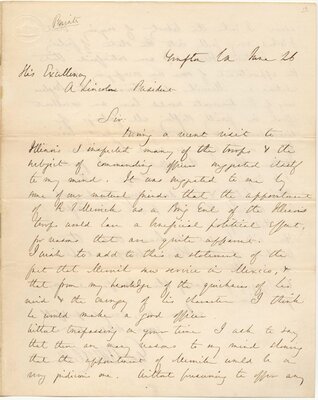 Private
Compton Ca June 26
His Excellency
A Lincoln President
Sir
During a recent visit to
Illinois I inspected many of the troops & the
subject of commanding officers suggested itself
to my mind. It was suggested to me by
some of our mutual friends that the appointment
of R Merrick as a Brig Genl of the Illinois
troops would have a beneficial political effect,
for reasons that are quite apparent.
I wish to add to this a statement of the
fact that Merrick saw service in Mexico, &
that from my knowledge of the quickness of his
mind & the energy of his character I think
he would make a good officer
Without trespassing on your time I ask to say
that there are many reasons to my mind showing
that the appointment of Merrick would be a
very judicious one. Without presuming to offer any